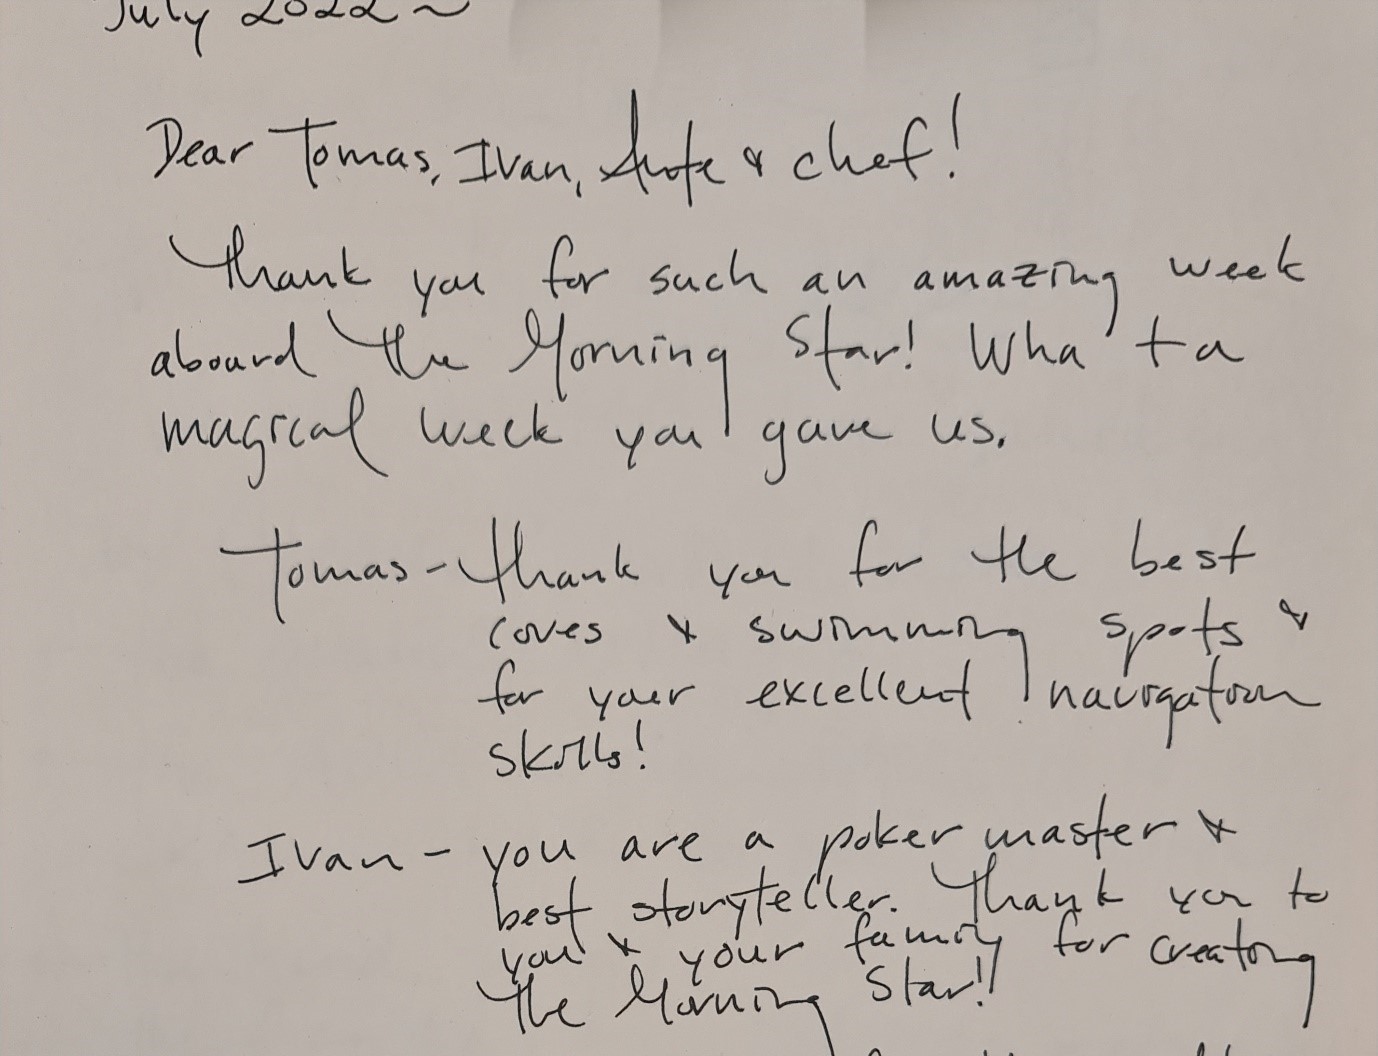 July 2022 ~
Dear Tomas, Ivan, Ante & chef!
Thank you for such an amazing week
aboard the Morning Star! What a
magical week you gave us.
Tomas - thank you for the best
coves & swimming spots &
for your excellent navigation
skills!
Ivan - you are a poker master &
best storyteller. Thank you to
you & your family for creating
the Morning Star!!